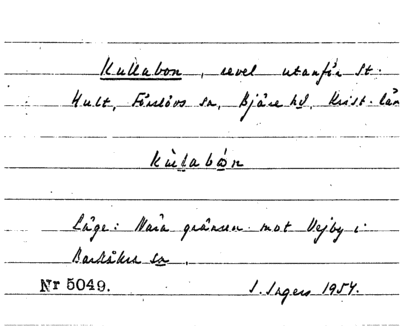 Kullabon, revel utanför St.
Hult, Förslövs sn, Bjäre hd, Krist. län
Kùlabón
Läge: Nära gränsen mot Vejby i
Barkåkra sn.
Nr 5049. I. Ingers 1957.